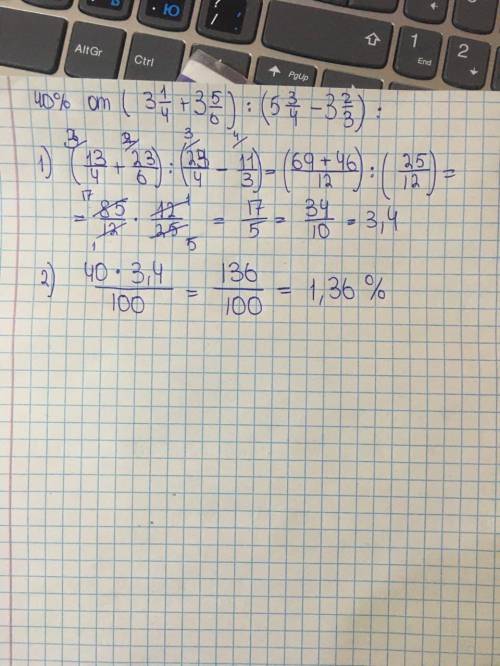 Ю
AltGr
Ctrl
?
/
PgUp
1
End
2
40% от ( 3 1/4 + 3 5/6 ) : ( 5 3/4 - 3 2/3 ) :
1) ( 13/4 + 23/6 ) : ( 23/4 - 11/3 ) = ( 69 + 46 / 12 ) : ( 25/12 ) =
= 85/12 · 12/25 = 17/5 = 34/10 = 3,4
2) 40 · 3,4 / 100 = 136/100 = 1,36 %